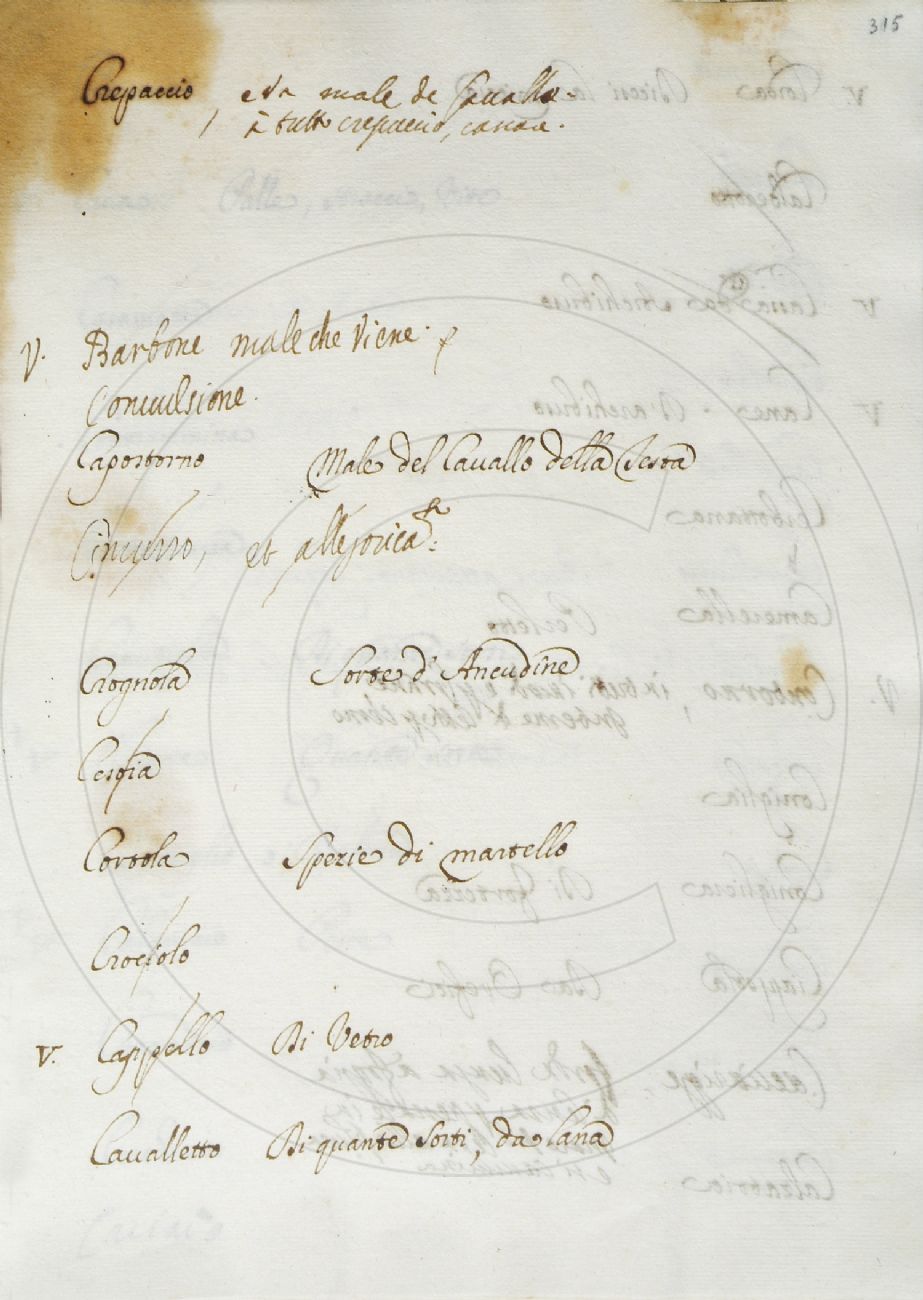 315
Crepaccio, male de Cauallo.
è tutt crepaccio,
V. Barbone male che Viene.
Conuulsione.
Capostorno Male del Cauallo della Testa
Cimurro, et allegorica
Crognola Sorte d' Ancudine
Cesoia
Cortola Spezie di martello
Crociolo
V. Cappello Di Vetro
Caualletto Di quante sorti, da lana